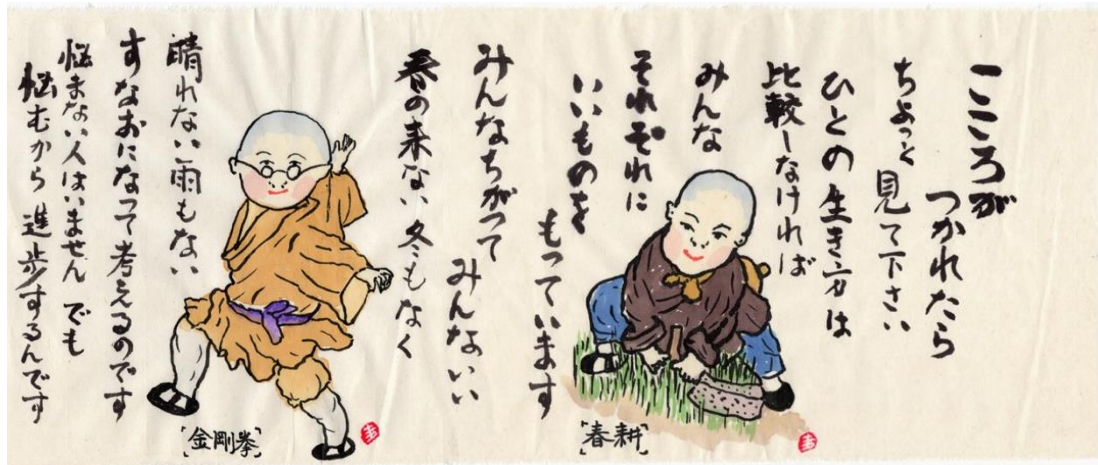 こころが
つかれたら
ちょっと見て下さい
ひとの生き方は
比較しなければ
みんな
それぞれに
いいものを
もっています
みんなちがって
みんないい
春の来ない冬もなく
晴れない雨もない
すなおになって考えるのです
悩まない人はいません でも
悩むから 進歩するんです
「春耕」
「金剛拳」